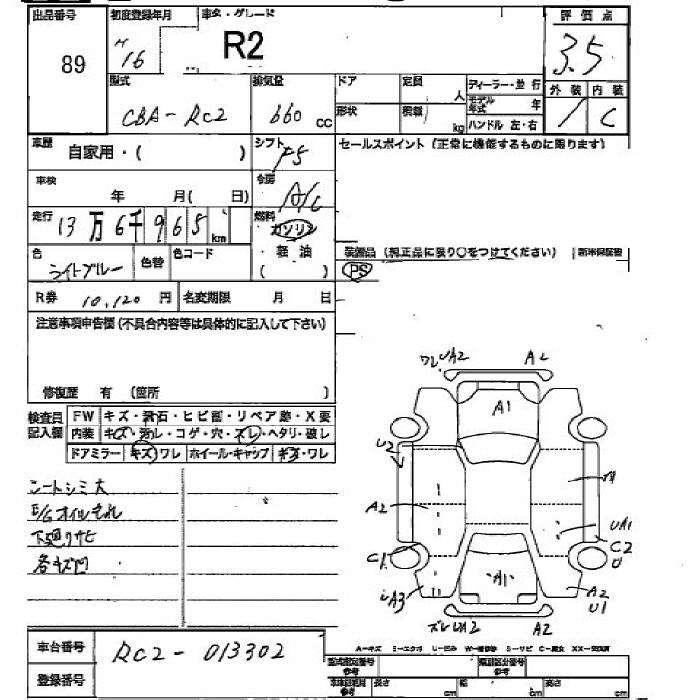 出品番号 89
初度登録年月 H 16
車名・グレード R2
評価点 3.5
型式 CBA-RC2
排気量 660 cc
ドア 形状
定員 人 積載 kg
ディーラー・並行
モデル年式 年
ハンドル 左・右
外装 内装
/ C
車歴 自家用・( )
シフト F5
セールスポイント (正常に機能するものに限ります)
車検 年 月( 日)
冷房 A/C
走行 13万6千965km
燃料 ガソリン 軽油 ( )
色 ライトブルー 色替 色コード
装備品 (純正品に限り○をつけてください) 新車保証書
PS
R券 10,120 円 名変期限 月 日
注意事項申告欄 (不具合内容等は具体的に記入して下さい)
修復歴 有 (箇所 )
検査員記入欄
FW キズ・飛石・ヒビ割・リペア跡・X要
内装 キズ・汚レ・コゲ・穴・スレ・ヘタリ・破レ
ドアミラー キズ・ワレ ホイール・キャップ キズ・ワレ
シートシミ大
E/Gオイルもれ
下廻りサビ
各キズ凹
ワレ UA2 A2
A1
U2
A2
UA1
C1 C2
U
A1
A3 A2
U1
ズレ UA2 A2
車台番号 RC2-013302
登録番号
A=キズ E=エクボ U=凹み W=補修跡 S=サビ C=腐食 XX=交換済
型式指定番号 参考
類別区分番号 参考
長さ cm 幅 cm 高さ cm